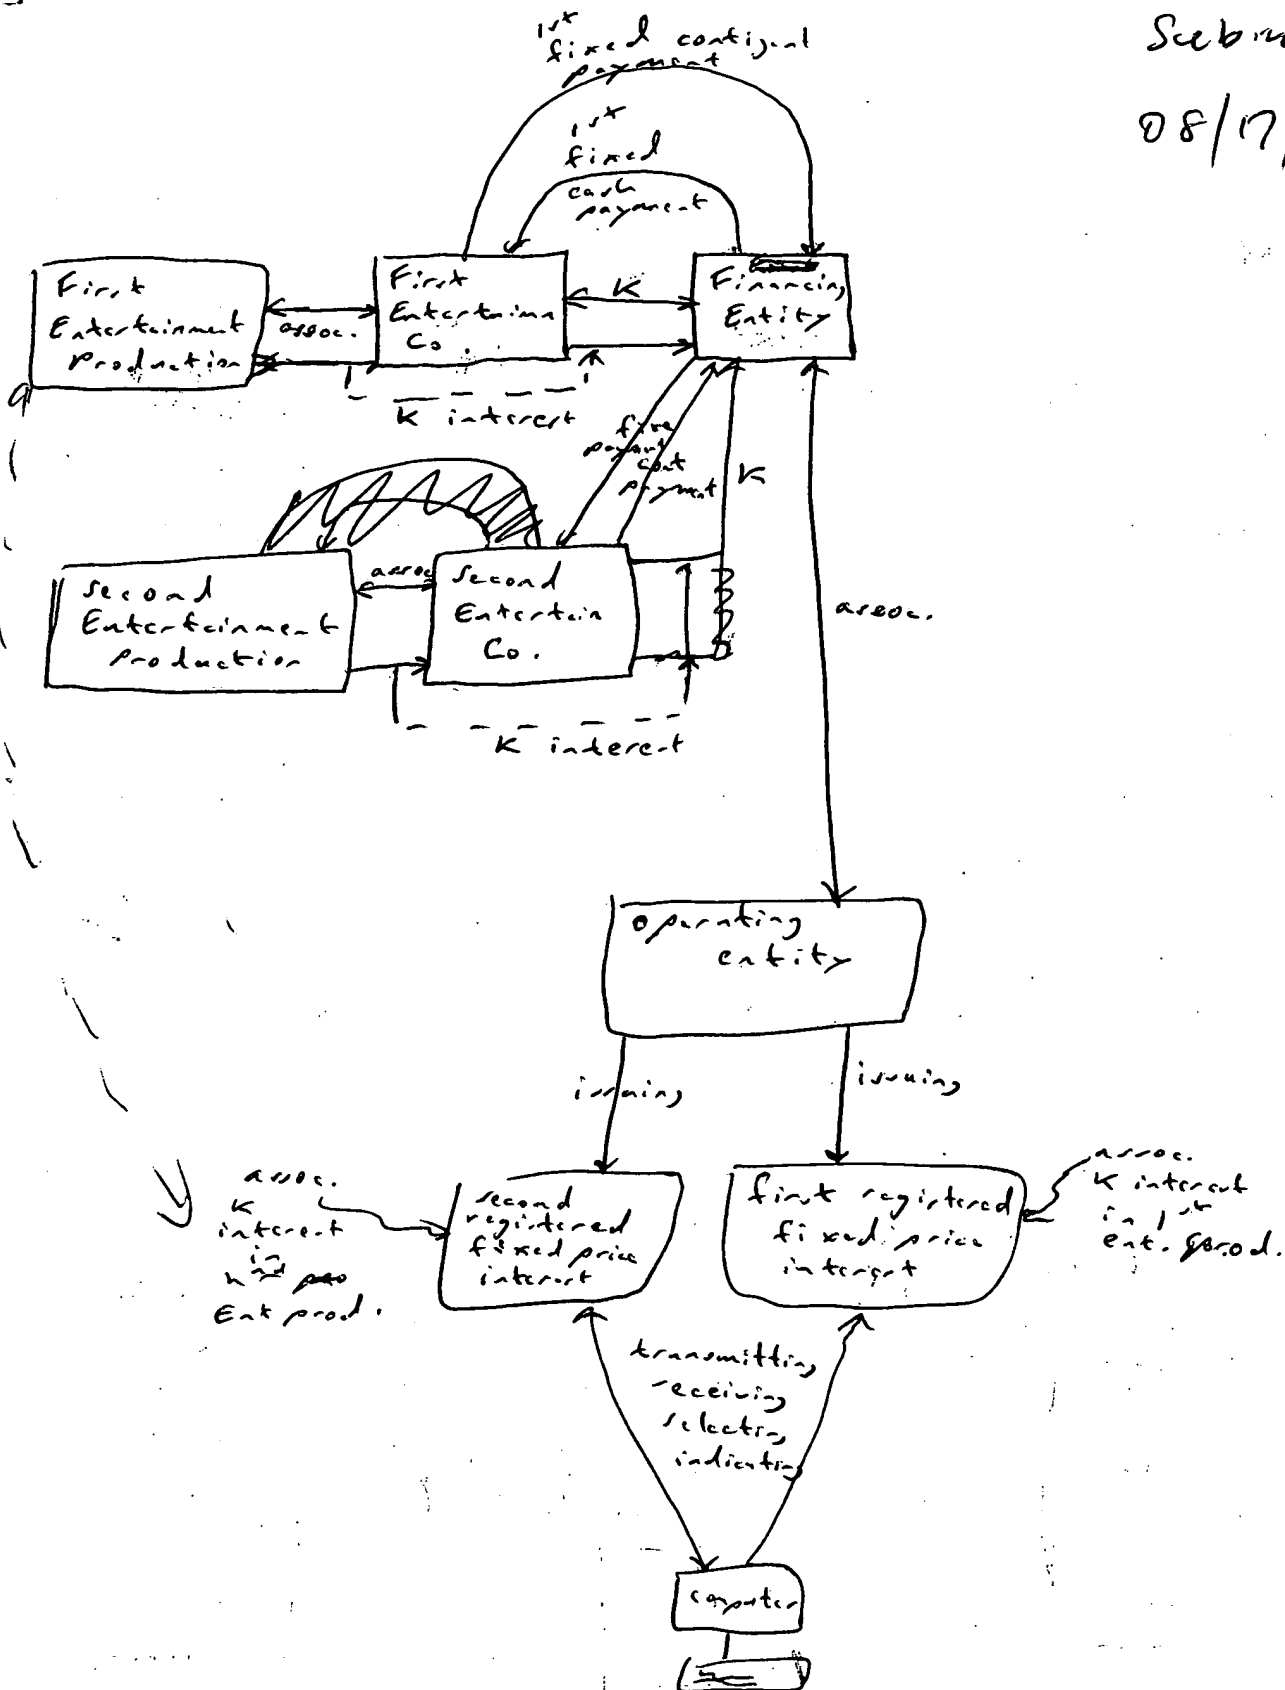 1st
fixed contigent
payment
08/17,
1st
fixed
cash
payment
First
Entertainment
Production
assoc.
First
Entertainm
Co.
K
Financing
Entity
K interest
fixe
payment
cont
payment
K
second
Entertainment
Production
assoc
second
Entertain
Co.
assoc.
K interest
operating
entity
issuing
issuing
assoc.
K
interest
in
Ent prod.
second
registered
fixed price
interest
first registered
fixed price
interest
assoc.
K interest
in 1st
ent. prod.
transmitting
receiving
selecting
indicating
computer